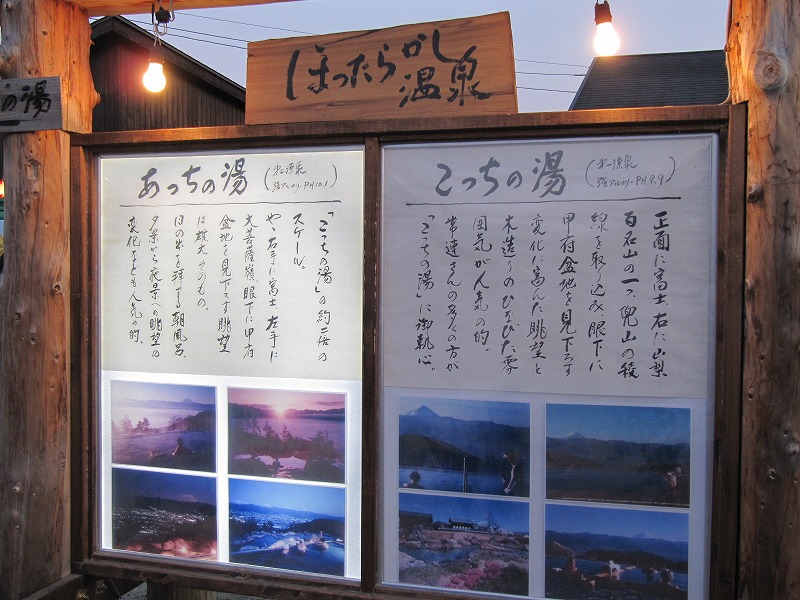 ほったらかし温泉
の湯
あっちの湯
(米二源泉
強アルカリ・PH10.1)
「こっちの湯」の約二倍の
スケール。
やゝ右手に富士 左手に
大菩薩嶺、眼下に甲府
盆地を見下ろす眺望
は雄大そのもの。
日の出を拝する朝風呂、
夕景から夜景への眺望の
変化なども人気の的。
こっちの湯
(米一源泉
強アルカリ・PH9.9)
正面に富士 右に山梨
百名山の一つ、兜山の稜
線を取り込み、眼下に
甲府盆地を見下ろす
変化に富んだ眺望と
木造りのひなびた雰
囲気が人気の的。
常連さんの多くの方が
「こっちの湯」に御執心。